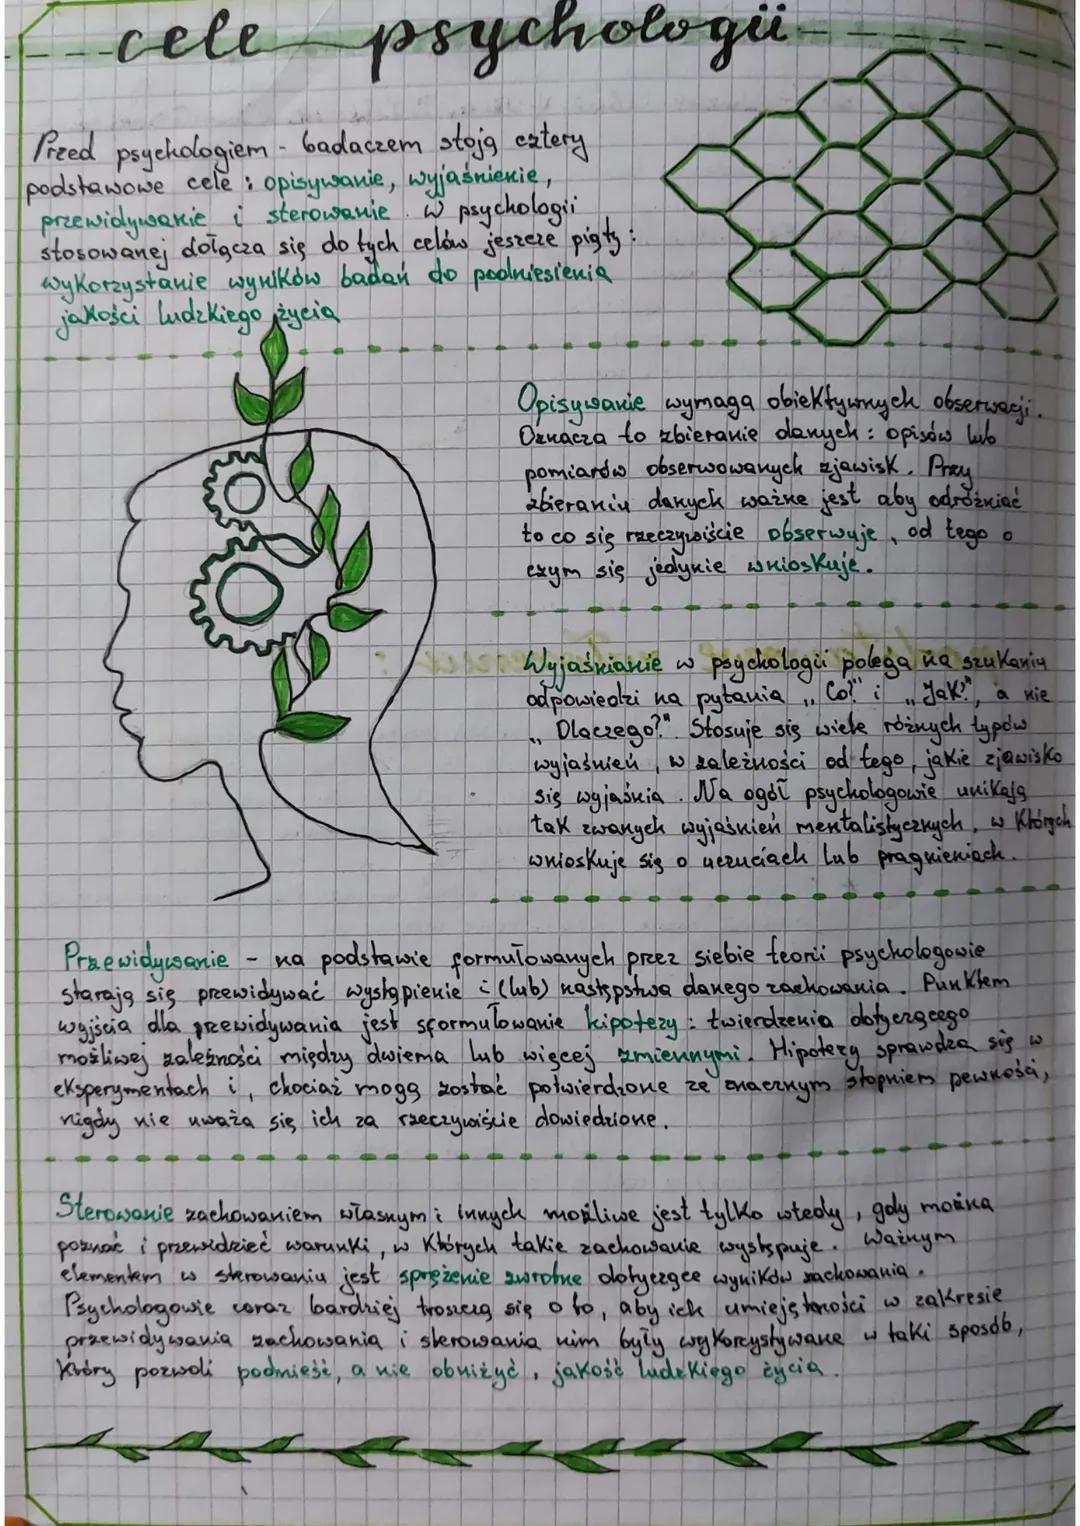 cele psychologii
Przed psychologiem - badaczem stoją cztery
podstawowe cele : opisywanie, wyjaśnienie,
przewidywanie i sterowanie. W psychologii
stosowanej dołącza się do tych celów jeszcze piąty :
wykorzystanie wyników badań do podniesienia
jakości ludzkiego życia
Opisywanie wymaga obiektywnych obserwacji.
Oznacza to zbieranie danych : opisów lub
pomiarów obserwowanych zjawisk. Przy
zbieraniu danych ważne jest aby odróżniać
to co się rzeczywiście obserwuje, od tego o
czym się jedynie wnioskuje.
Wyjaśnianie w psychologii polega na szukaniu
odpowiedzi na pytania „Co?" i „Jak?", a nie
„Dlaczego?". Stosuje się wiele różnych typów
wyjaśnień, w zależności od tego, jakie zjawisko
się wyjaśnia. Na ogół psychologowie unikają
tak zwanych wyjaśnień mentalistycznych, w których
wnioskuje się o uczuciach lub pragnieniach.
Przewidywanie - na podstawie formułowanych przez siebie teorii psychologowie
starają się przewidywać wystąpienie i (lub) następstwa danego zachowania. Punktem
wyjścia dla przewidywania jest sformułowanie hipotezy : twierdzenia dotyczącego
możliwej zależności między dwiema lub więcej zmiennymi. Hipotezy sprawdza się w
eksperymentach i, chociaż mogą zostać potwierdzone ze znacznym stopniem pewności,
nigdy nie uważa się ich za rzeczywiście dowiedzione.
Sterowanie zachowaniem własnym i innych możliwe jest tylko wtedy, gdy można
poznać i przewidzieć warunki, w których takie zachowanie występuje. Ważnym
elementem w sterowaniu jest sprężenie zwrotne dotyczące wyników zachowania.
Psychologowie coraz bardziej troszczą się o to, aby ich umiejętności w zakresie
przewidywania zachowania i sterowania nim były wykorzystywane w taki sposób,
który pozwoli podnieść, a nie obniżyć, jakość ludzkiego życia.